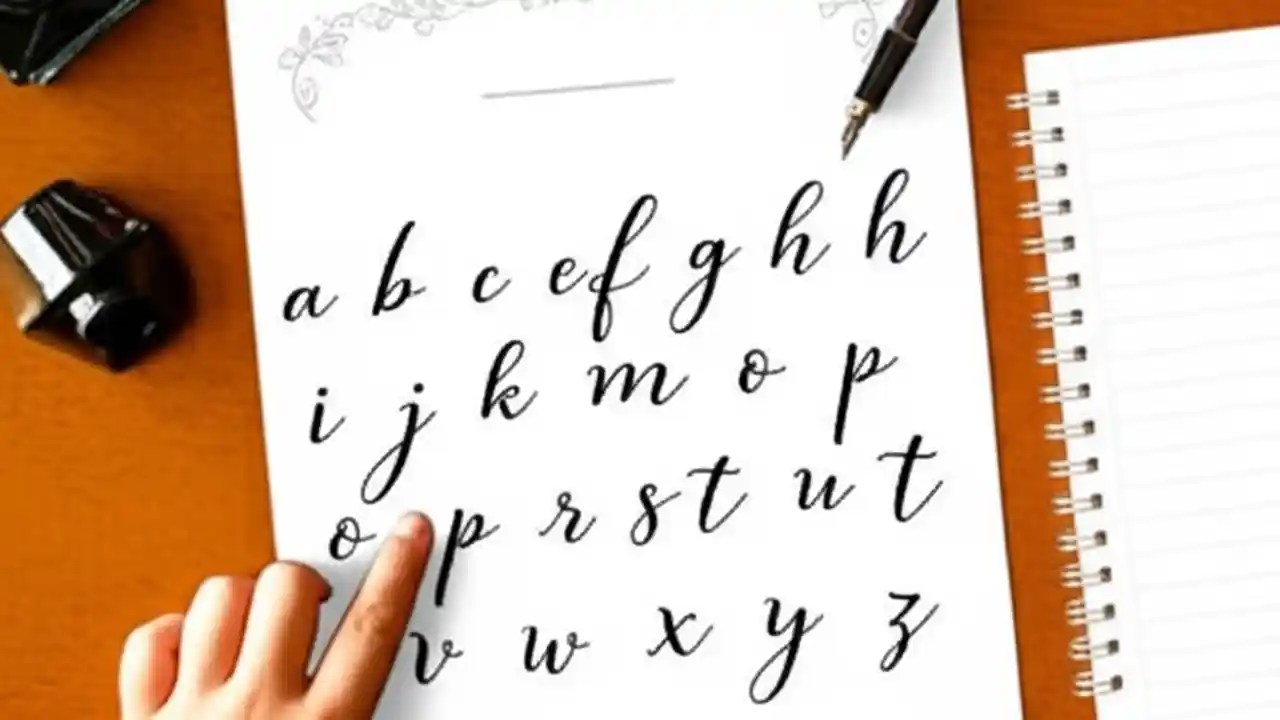 a b c e f g h h
i j k m o p
o p r s t u t
v w x y z